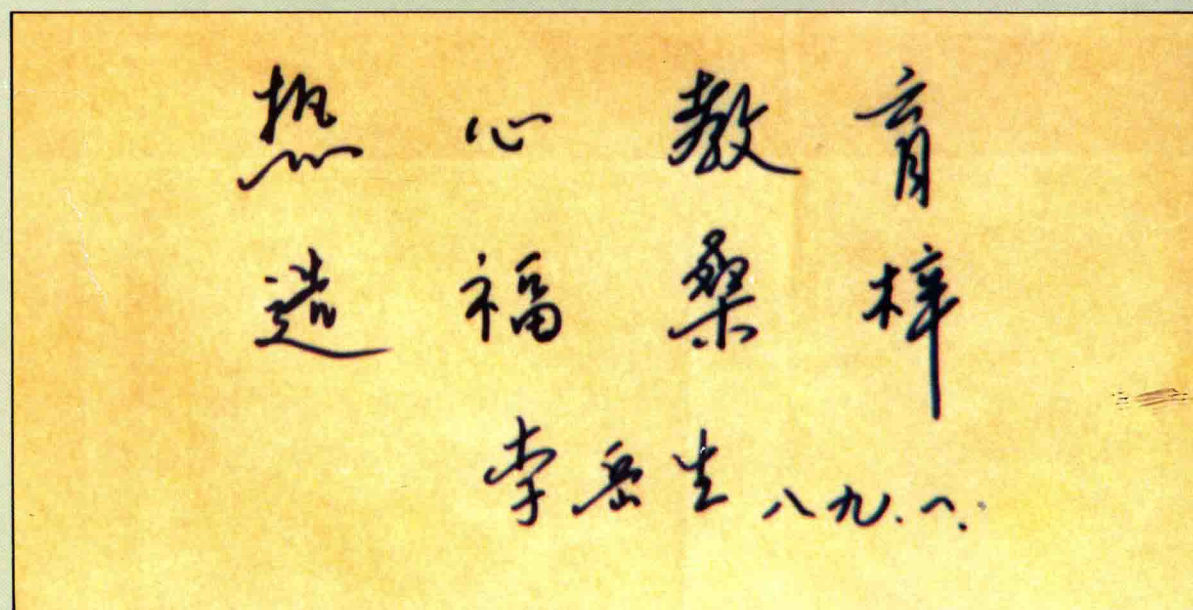 热心教育
造福桑梓
李岳生 八九.八.